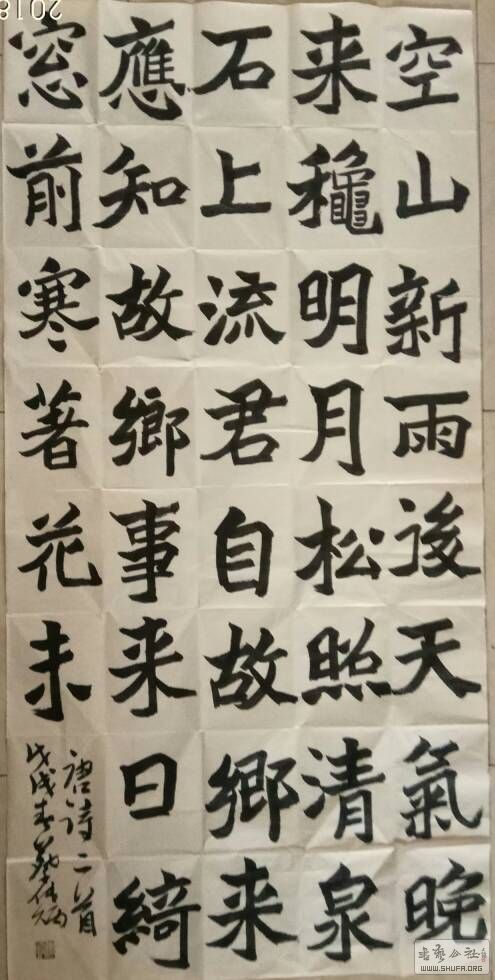 空山新雨後天氣晚
来龝明月松照清泉
石上流君自故鄉来
應知故鄉事来日綺
窓前寒著花未
唐詩二首
戊戌春
2018
书艺公社
WWW.SHUFA.ORG